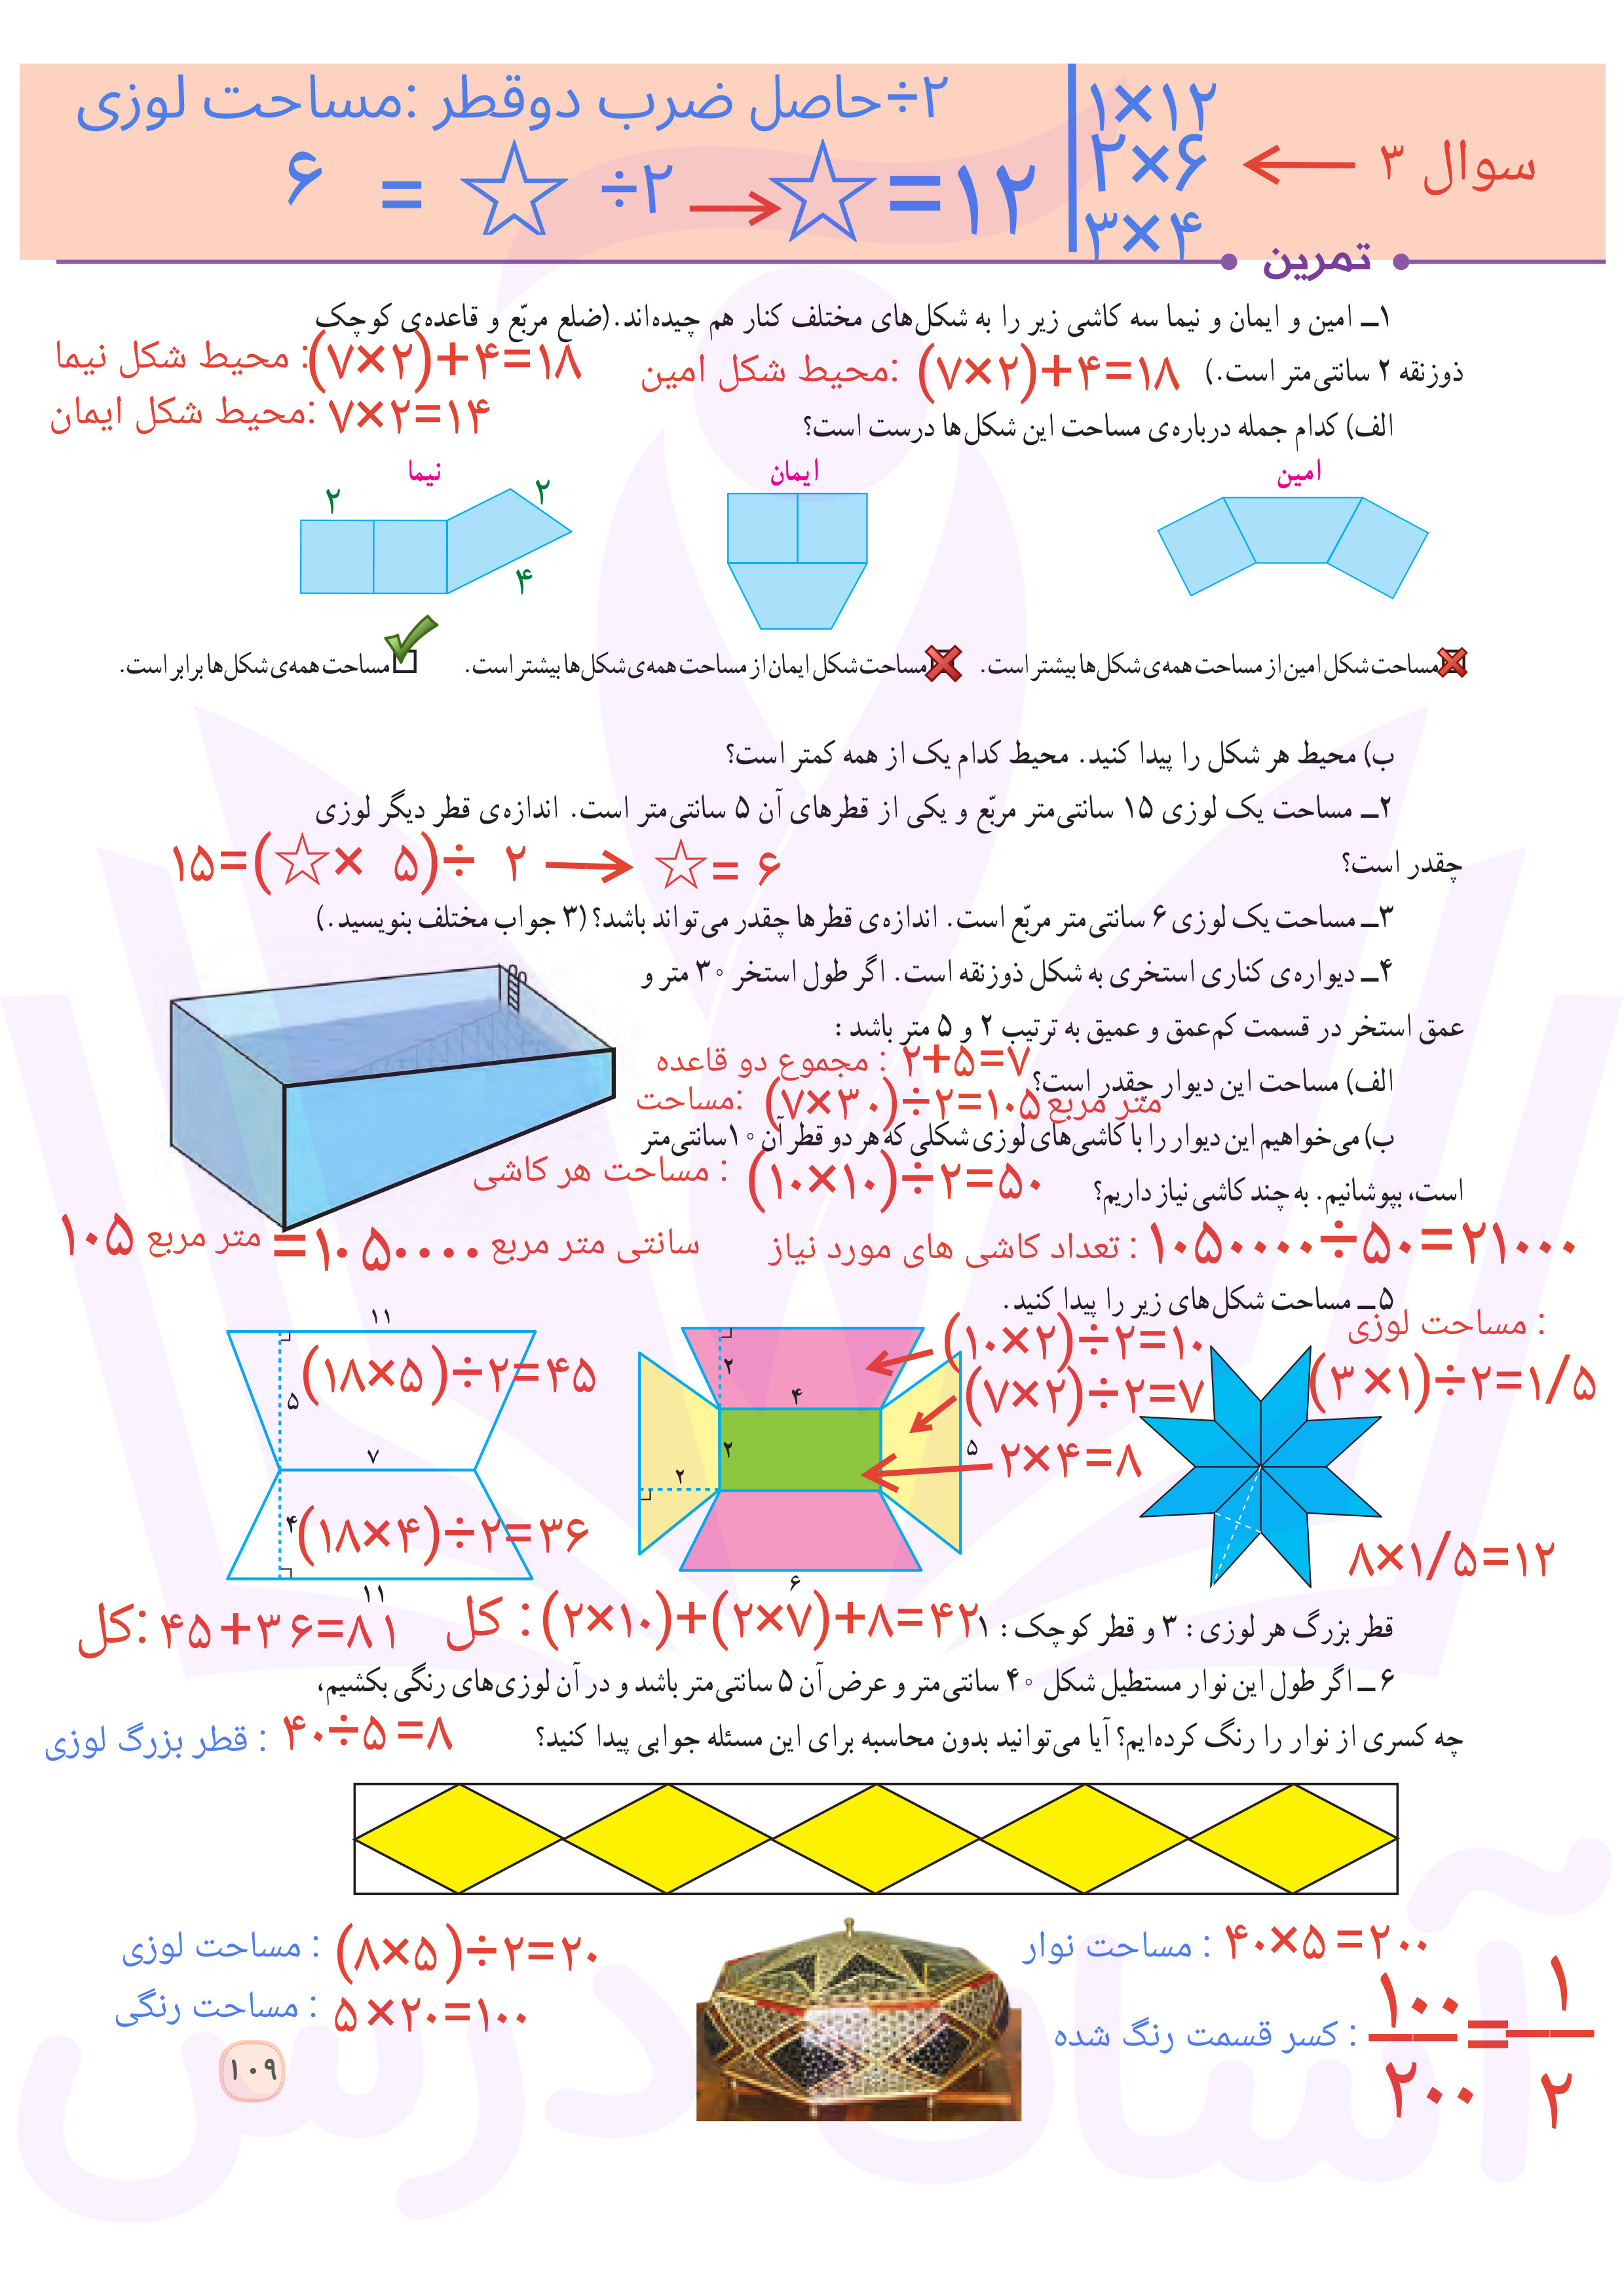 ۲÷حاصل ضرب دوقطر :مساحت لوزی
۶ = ☆ ÷۲ → ☆=۱۲
۱×۱۲
۲×۶
۳×۴
سوال ۳
تمرین
۱ــ امین و ایمان و نیما سه کاشی زیر را به شکل‌های مختلف کنار هم چیده‌اند.(ضلع مربّع و قاعده‌ی کوچک
ذوزنقه ۲ سانتی‌متر است.)
محیط شکل امین: (۷×۲)+۴=۱۸
محیط شکل نیما : (۷×۲)+۴=۱۸
محیط شکل ایمان: ۷×۲=۱۴
الف) کدام جمله درباره‌ی مساحت این شکل‌ها درست است؟
امین
ایمان
نیما
۲
۲
۴
مساحت شکل امین از مساحت همه‌ی شکل‌ها بیشتر است.
مساحت شکل ایمان از مساحت همه‌ی شکل‌ها بیشتر است.
مساحت همه‌ی شکل‌ها برابر است.
ب) محیط هر شکل را پیدا کنید. محیط کدام یک از همه کمتر است؟
۲ــ مساحت یک لوزی ۱۵ سانتی‌متر مربّع و یکی از قطرهای آن ۵ سانتی‌متر است. اندازه‌ی قطر دیگر لوزی
چقدر است؟
۱۵=(☆× ۵)÷ ۲ → ☆= ۶
۳ــ مساحت یک لوزی ۶ سانتی‌متر مربّع است. اندازه‌ی قطرها چقدر می‌تواند باشد؟ (۳ جواب مختلف بنویسید.)
۴ــ دیواره‌ی کناری استخری به شکل ذوزنقه است. اگر طول استخر ۳۰ متر و
عمق استخر در قسمت کم‌عمق و عمیق به ترتیب ۲ و ۵ متر باشد :
مجموع دو قاعده : ۲+۵=۷
الف) مساحت این دیوار چقدر است؟
مساحت: (۷×۳۰)÷۲=۱۰۵ متر مربع
ب) می‌خواهیم این دیوار را با کاشی‌های لوزی شکلی که هر دو قطر آن ۱۰سانتی‌متر
مساحت هر کاشی : (۱۰×۱۰)÷۲=۵۰
است، بپوشانیم. به چند کاشی نیاز داریم؟
۱۰۵ متر مربع =۱۰۵۰۰۰۰ سانتی متر مربع
تعداد کاشی های مورد نیاز : ۱۰۵۰۰۰۰÷۵۰=۲۱۰۰۰
۵ــ مساحت شکل‌های زیر را پیدا کنید.
مساحت لوزی :
(۳×۱)÷۲=۱/۵
۸×۱/۵=۱۲
(۱۰×۲)÷۲=۱۰
(۷×۲)÷۲=۷
۲×۴=۸
۲
۴
۲
۲
۵
۶
۱۱
۵
(۱۸×۵)÷۲=۴۵
۷
۴
(۱۸×۴)÷۲=۳۶
۱۱
قطر بزرگ هر لوزی : ۳ و قطر کوچک : ۱
کل : (۲×۱۰)+(۲×۷)+۸=۴۲
کل: ۴۵+۳۶=۸۱
۶ــ اگر طول این نوار مستطیل شکل ۴۰ سانتی‌متر و عرض آن ۵ سانتی‌متر باشد و در آن لوزی‌های رنگی بکشیم،
چه کسری از نوار را رنگ کرده‌ایم؟ آیا می‌توانید بدون محاسبه برای این مسئله جوابی پیدا کنید؟
قطر بزرگ لوزی : ۴۰÷۵=۸
مساحت نوار : ۴۰×۵=۲۰۰
مساحت لوزی : (۸×۵)÷۲=۲۰
مساحت رنگی : ۵×۲۰=۱۰۰
کسر قسمت رنگ شده : ۱۰۰/۲۰۰=۱/۲
۱۰۹
آسان درس